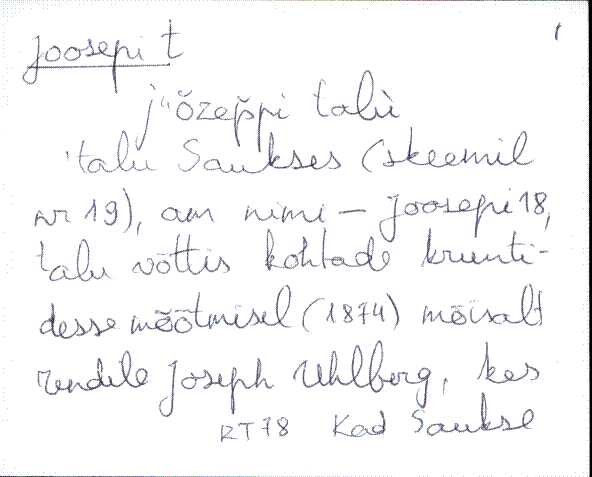 Joosepi t
j'ŏzep̆pi talù
'talu Saukses (skeemil
nr 19), am nimi – Joosepi 18,
talu võttis kohtade krunti-
desse mõõtmisel (1874) mõisalt
rendile Joseph Uhlberg, kes
RT78 Kad Saukse